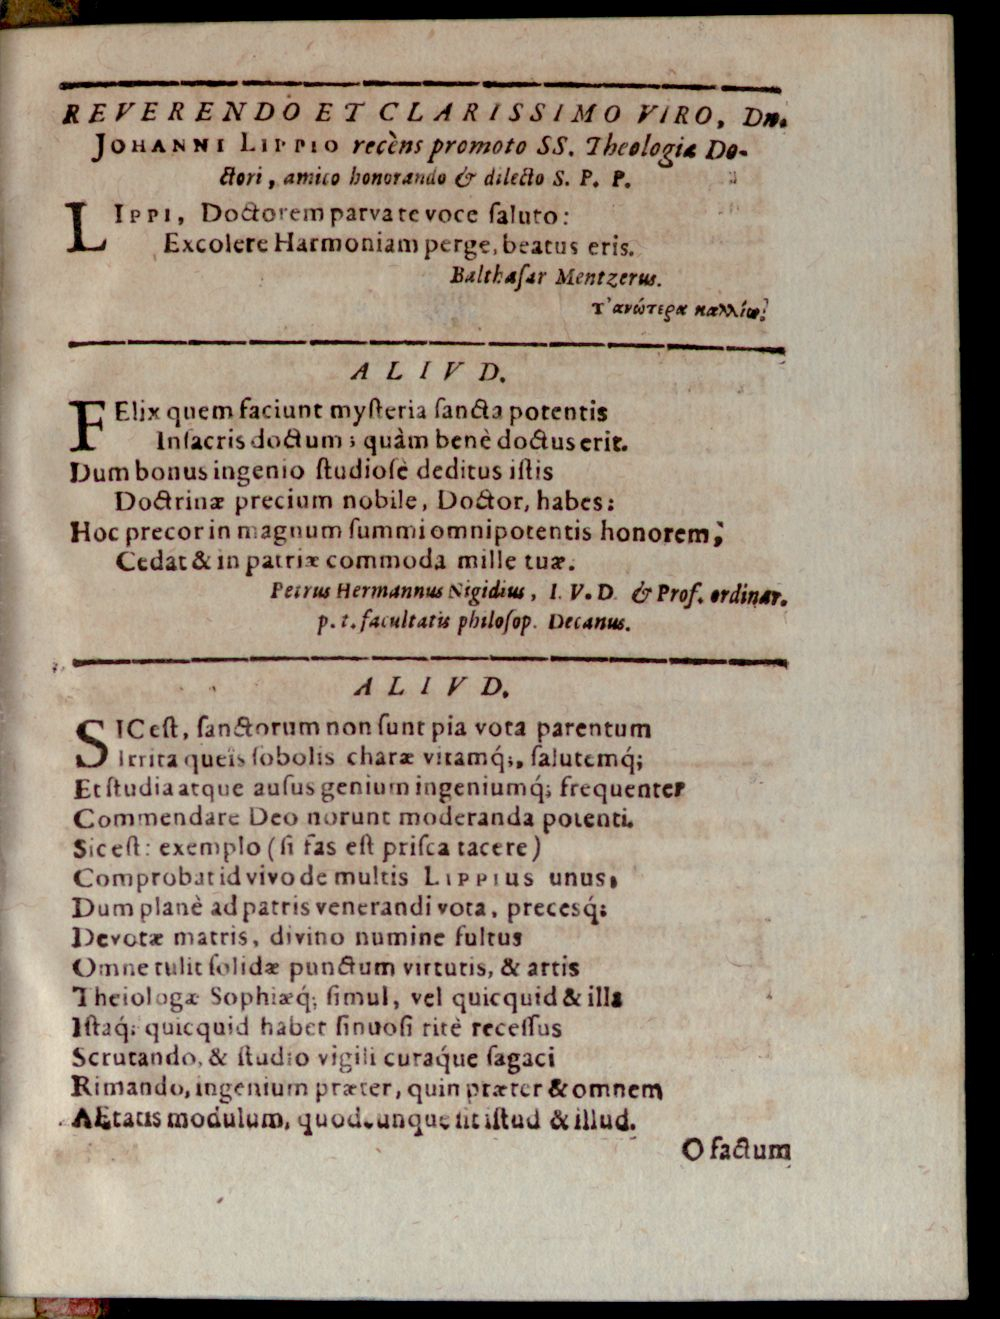 REVERENDO ET CLARISSIMO VIRO, Dn.
JOHANNI LIPPIO recèns promoto SS. Theologiæ Do-
ctori, amico honorando & dilecto S. P. P.
LIPPI, Doctorem parva te voce ſaluto:
Excolere Harmoniam perge, beatus eris.
Balthaſar Mentzerus.
Τ' ἀνώτερα καλλίω!
ALIVD.
FElix quem faciunt myſteria ſancta potentis
In ſacris doctum; quàm benè doctus erit.
Dum bonus ingenio ſtudioſè deditus iſtis
Doctrinæ precium nobile, Doctor, habes:
Hoc precor in magnum ſummi omnipotentis honorem;
Cedat & in patriæ commoda mille tuæ.
Petrus Hermannus Nigidius, I. V. D. & Prof. ordinar.
p. t. facultatis philoſop. Decanus.
ALIVD.
SIC eſt, ſanctorum non ſunt pia vota parentum
Irrita queîs ſobolis charæ vitamq́;, ſalutemq́;
Et ſtudia atque auſus genium ingeniumq́; frequenter
Commendare Deo norunt moderanda potenti.
Sic eſt: exemplo (ſi fas eſt priſca tacere)
Comprobat id vivo de multis LIPPIUS unus,
Dum planè ad patris venerandi vota, precesq́;
Devotæ matris, divino numine fultus
Omne tulit ſolidæ punctum virtutis, & artis
Theiologæ Sophiæq́; ſimul, vel quicquid & illa
Iſtaq́; quicquid habet ſinuoſi ritè receſſus
Scrutando, & ſtudio vigili curaq́ue ſagaci
Rimando, ingenium præter, quin præter & omnem
AEtatis modulum, quodcunque ſit iſtud & illud.
O factum